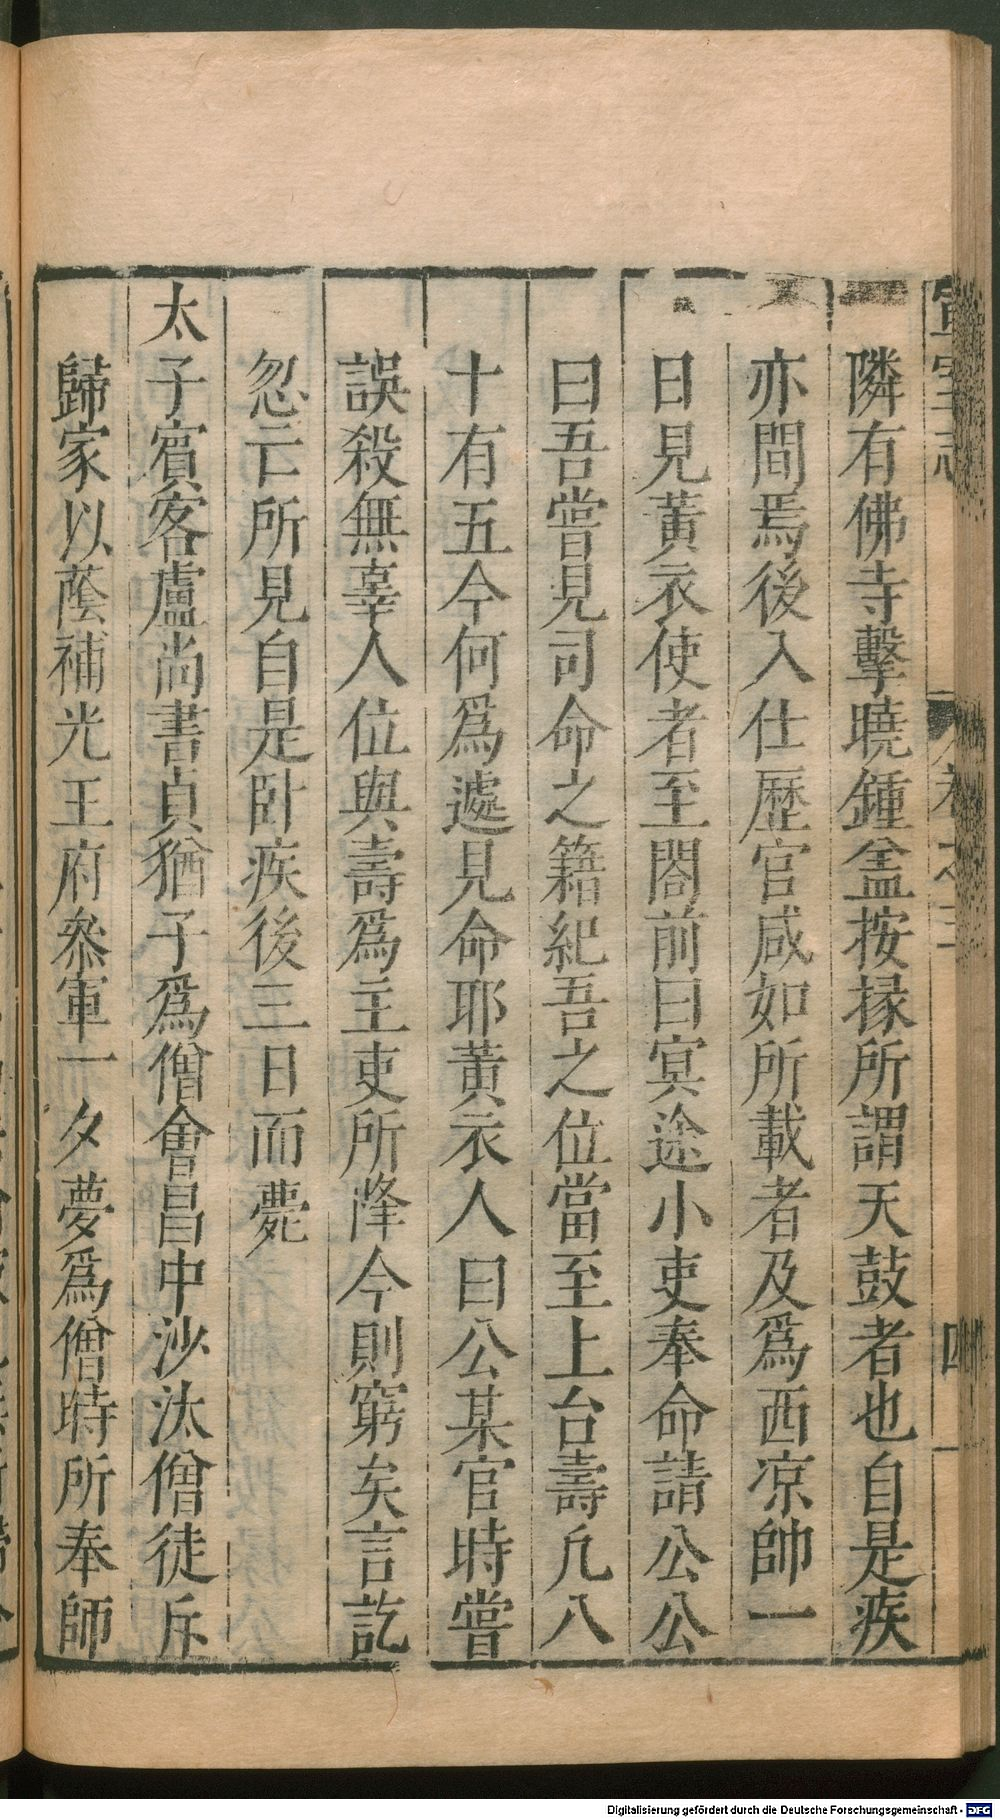 宣室志 卷之三 四
隣有佛寺擊曉鍾盖按掾所謂天鼓者也自是疾
亦間焉後入仕歷官咸如所載者及爲西凉帥一
日見黃衣使者至閤前曰冥途小吏奉命請公公
曰吾嘗見司命之籍紀吾之位當至上台壽凡八
十有五今何爲遽見命耶黃衣人曰公某官時嘗
誤殺無辜人位與壽爲主吏所降今則窮矣言訖
忽亡所見自是卧疾後三日而薨
太子賓客盧尚書貞猶子爲僧會昌中沙汰僧徒斥
歸家以蔭補光王府叅軍一夕夢爲僧時所奉師
Digitalisierung gefördert durch die Deutsche Forschungsgemeinschaft - DFG